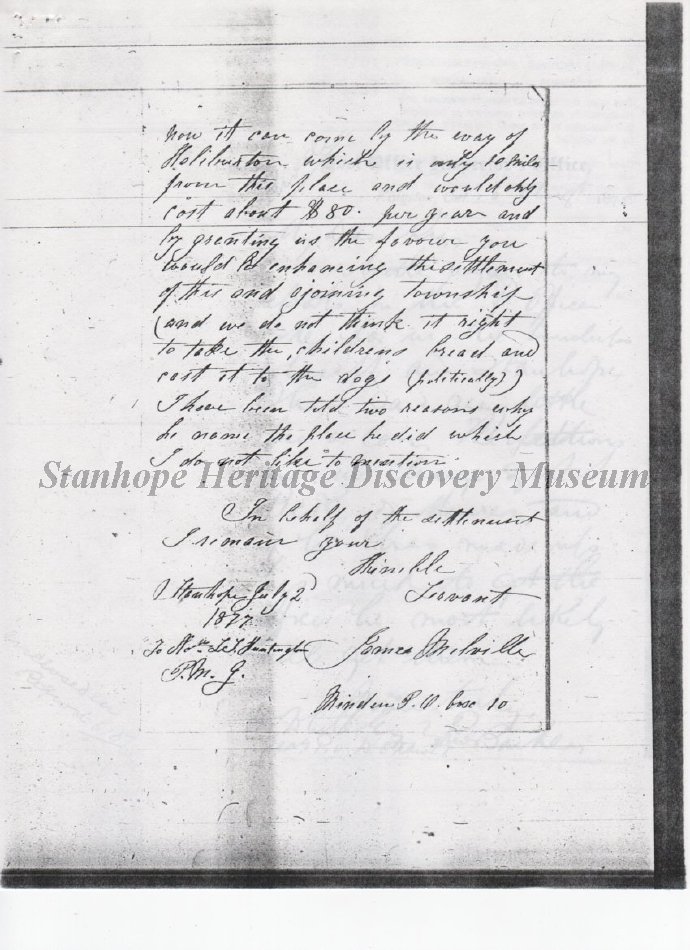 now it can come by the way of
Haliburton which is only 10 miles
from this place and would only
cost about $80. per year and
by granting us the favour you
would be enhancing the settlement
of this and ajoining township
(and we do not think it right
to take the childrens bread and
cast it to the dogs (politically))
I have been told two reasons why
he name the place he did which
I do not like to mention
Stanhope Heritage Discovery Museum
In behalf of the settlement
I remain your
Humble
Servant
Stanhope July 2
1877
To Hon. L.S. Huntington
P.M.G.
James Melville
Minden P.O. box 10